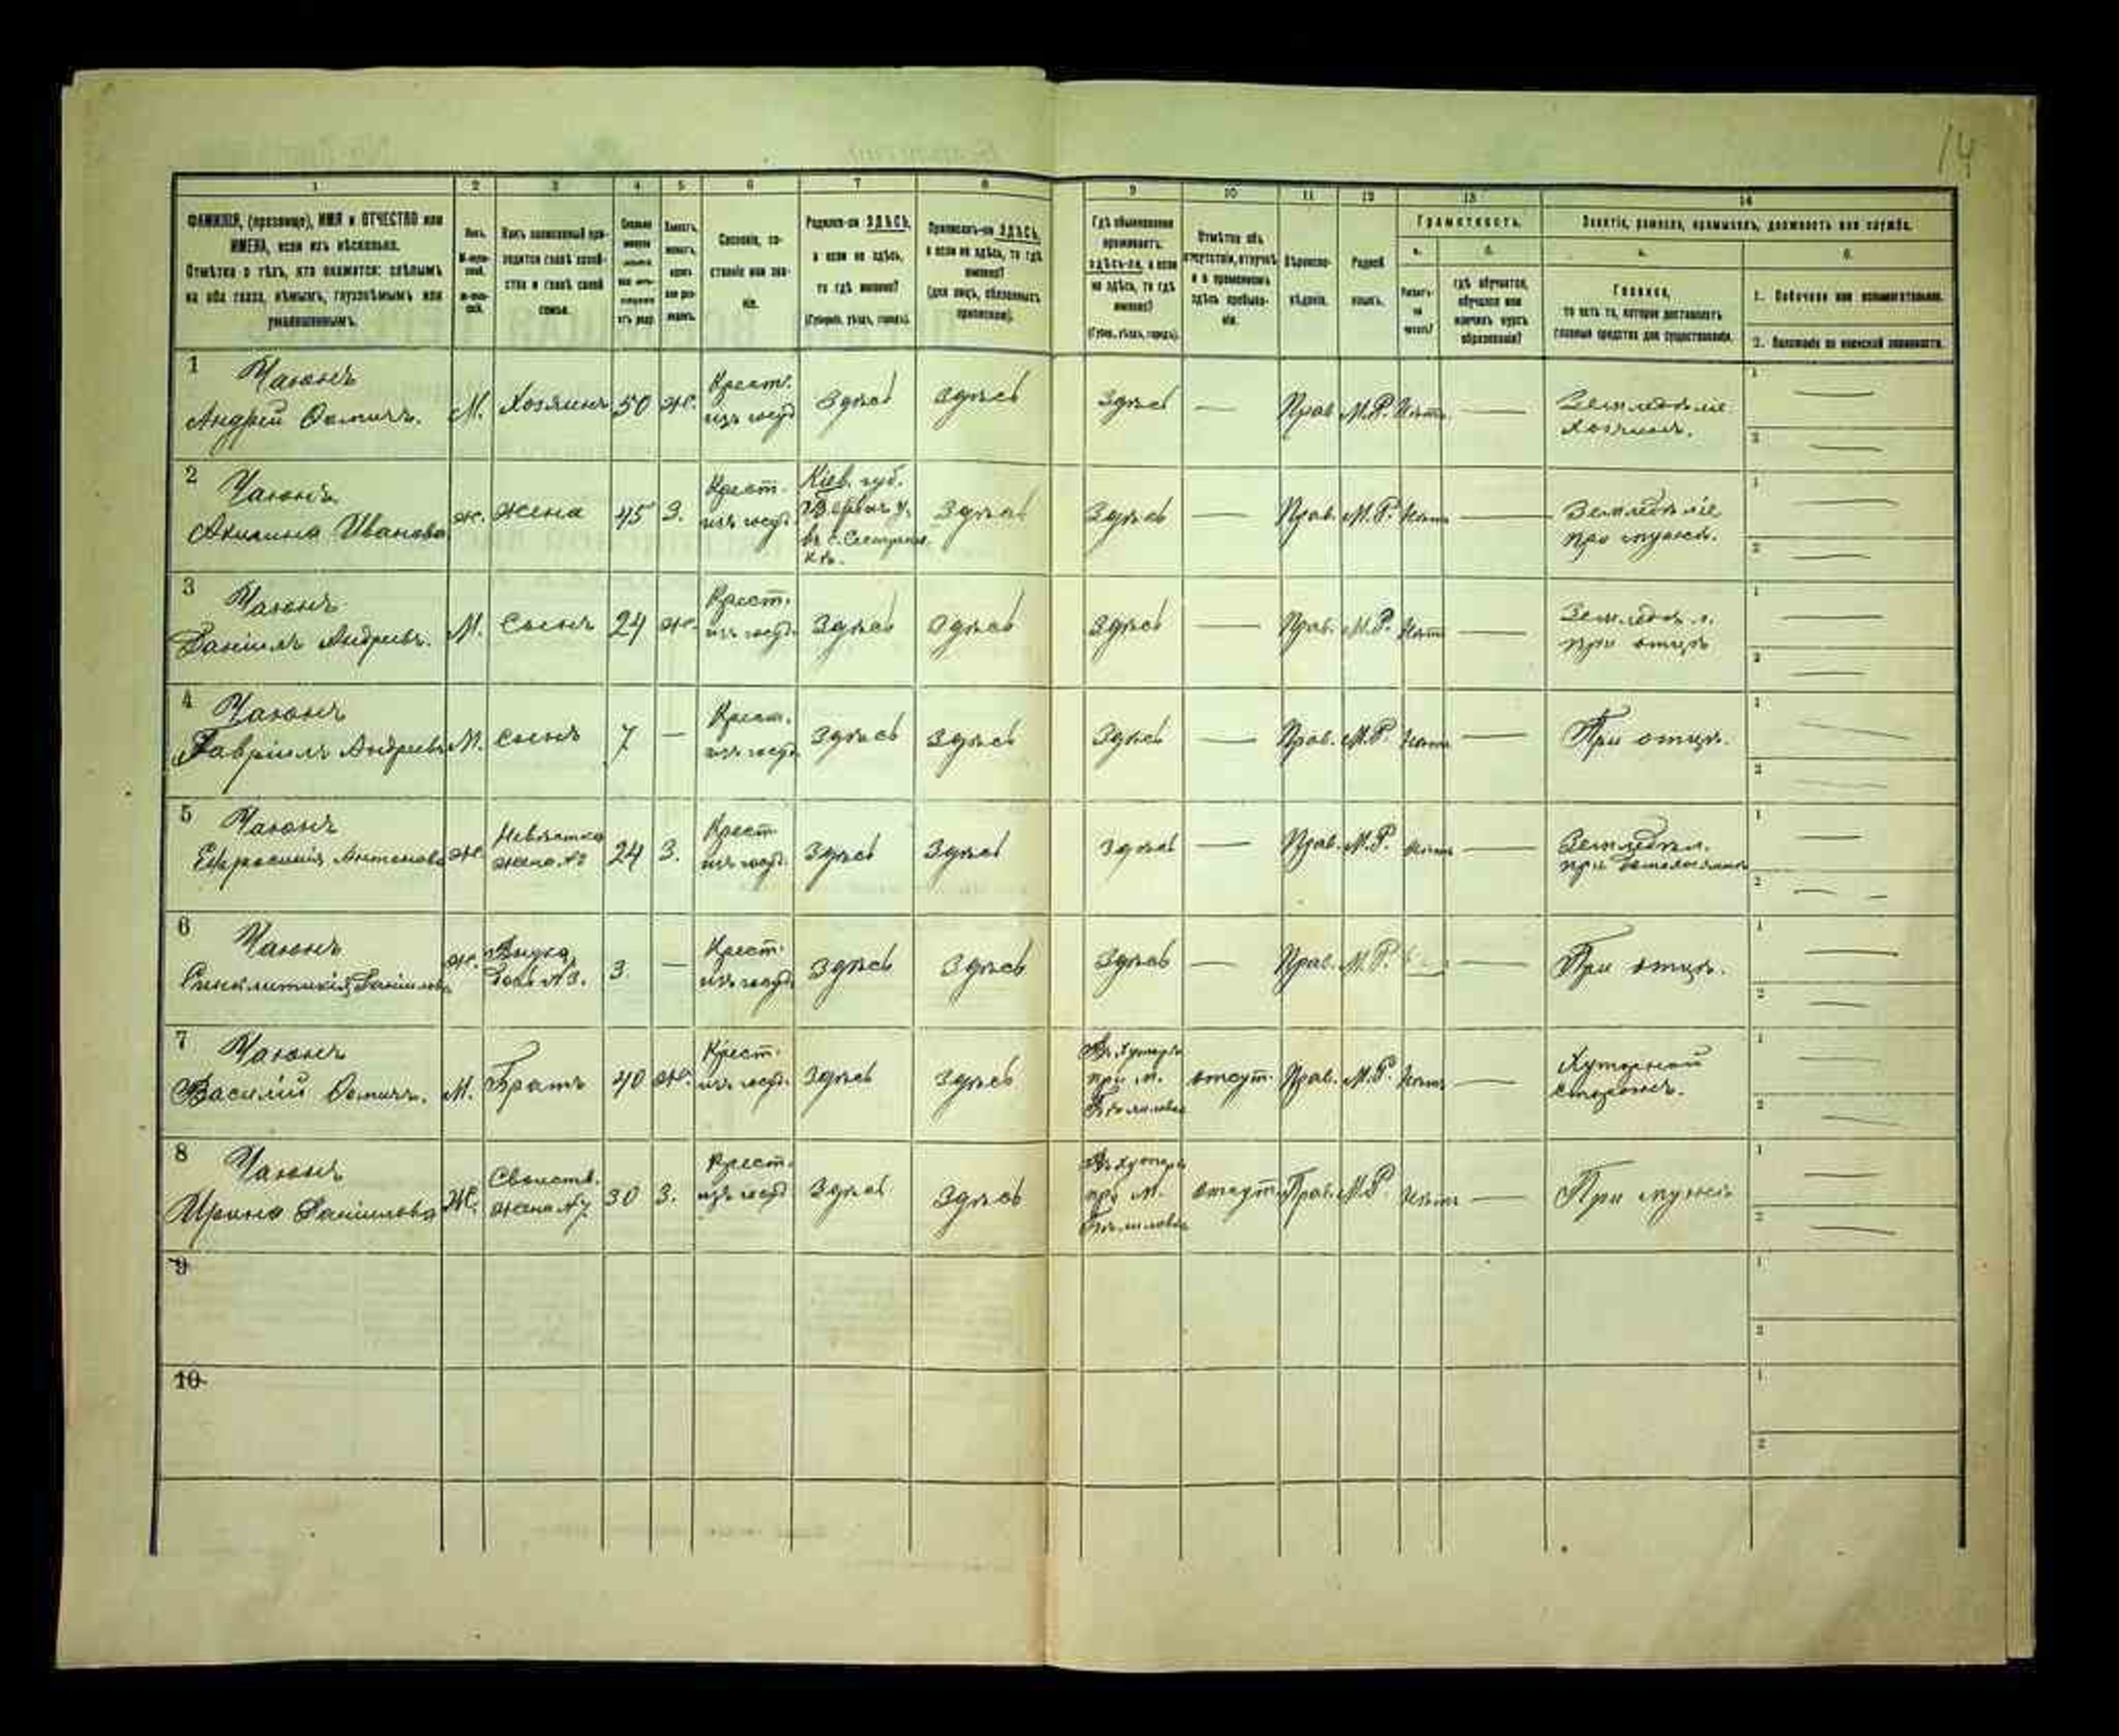 14
1 2 3 4 5 6 7 8 9 10 11 12 13 14
ФАМИЛІЯ, (прозвище), ИМЯ и ОТЧЕСТВО или
ИМЕНА, если ихъ нѣсколько.
Отмѣтка о тѣхъ, кто окажется: слѣпымъ
на оба глаза, нѣмымъ, глухонѣмымъ или
умалишеннымъ.
Полъ.
М-муж-
ской.
Ж-жен-
скій.
Какъ записанный при-
ходится главѣ хозяй-
ства и главѣ своей
семьи.
Сословіе, со-
стояніе или зва-
ніе.
Родился-ли ЗДѢСЬ,
а если не здѣсь,
то гдѣ именно?
(Губернія, уѣздъ, городъ).
Приписанъ-ли ЗДѢСЬ,
а если не здѣсь, то гдѣ
именно?
(для лицъ, обязанныхъ
припискою).
Гдѣ обыкновенно
проживаетъ:
здѣсь-ли, а если
не здѣсь, то гдѣ
именно?
(Губер., уѣздъ, городъ).
Отмѣтка объ
отсутствіи, отлучкѣ
и о временномъ
здѣсь пребыва-
ніи.
Вѣроиспо-
вѣданіе.
Родной
языкъ.
Грамотность.
а.
Умѣетъ-
ли
читать?
б.
гдѣ обучается,
обучался или
кончилъ курсъ
образованія?
Занятіе, ремесло, промыселъ, должность или служба.
а.
Главное,
то есть то, которое доставляетъ
главныя средства для существованія.
б.
1. Побочное или вспомогательное.
2. Положеніе по воинской повинности.
1 Чаюнъ
Андрей Фомичъ. М. Хозяинъ 50 ж. Крест. изъ госуд. Здѣсь Здѣсь Здѣсь — Прав. М.Р. Нѣтъ — Земледѣліе
хозяинъ.
2 Чаюнъ
Акилина Иванова ж. жена 45 З. Крест. изъ госуд. Кіев. губ.
у.
въ с.
Здѣсь Здѣсь — Прав. М.Р. Нѣтъ — Земледѣліе
при мужѣ.
3 Чаюнъ
Даніилъ Андреевъ. М. Сынъ 24 ж. Крест. изъ госуд. Здѣсь Здѣсь Здѣсь — Прав. М.Р. Нѣтъ — Земледѣл.
при отцѣ
4 Чаюнъ
Гавріилъ Андреевъ М. сынъ 7 — Крест. изъ госуд. Здѣсь Здѣсь Здѣсь — Прав. М.Р. Нѣтъ — При отцѣ.
5 Чаюнъ
Ефросинія Антонова ж. Невѣстка
жена №3 24 З. Крест. изъ госуд. Здѣсь Здѣсь Здѣсь — Прав. М.Р. Нѣтъ — Земледѣл.
при
6 Чаюнъ
Синклитикія Даніилова ж. Внука,
дочь №3. 3 — Крест. изъ госуд. Здѣсь Здѣсь Здѣсь — Прав. М.Р. — При отцѣ.
7 Чаюнъ
Василій Фомичъ. М. Братъ 40 ж. Крест. изъ госуд. Здѣсь Здѣсь Въ хуторѣ
при м.
отсут. Прав. М.Р. Нѣтъ — Хуторной
сторожъ.
8 Чаюнъ
Ирина Даніилова Ж. Свойств.
жена №7 30 З. Крест. изъ госуд. Здѣсь Здѣсь Въ хуторѣ
при м.
отсут. Прав. М.Р. Нѣтъ — При мужѣ
9
10